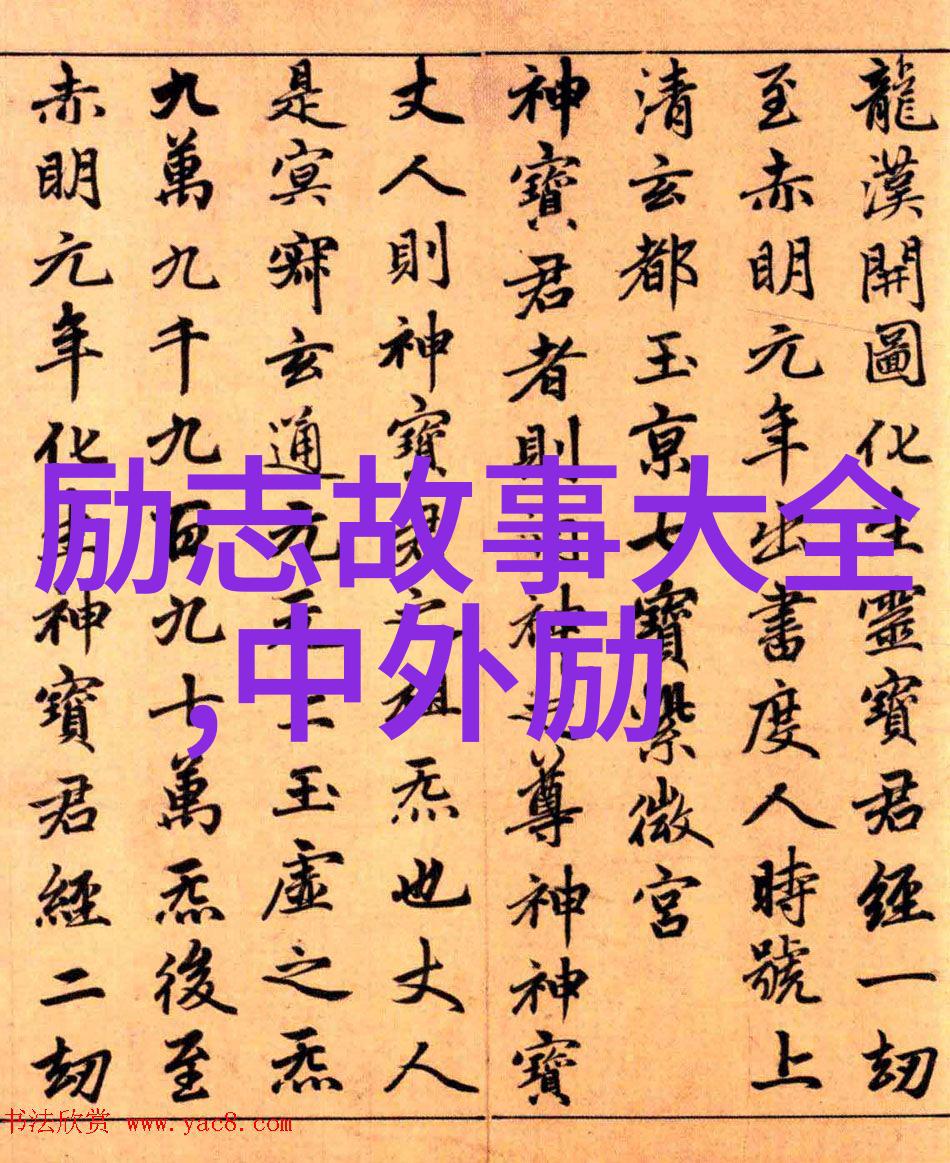 龍漢開圖化生靈寶君經一劫
至赤明元年出書度人時號上
清玄都玉京七寶紫微宮
神寶君者則洞神尊神神寶
丈人則神寶君之祖炁也丈人
是冥寂玄通元无上玉虛之炁
九萬九千九百九十萬炁後至
赤明元年化生神寶君經二劫
励志故事大全
,中外励
书法欣赏 www.yac8.com